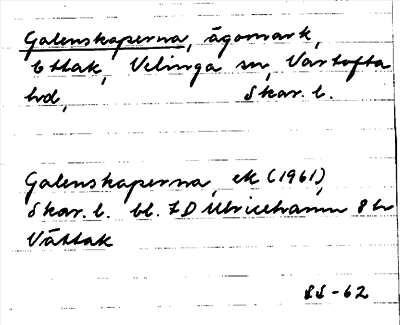 Galenskaperna, ägomark,
Ettak, Velinga sn, Vartofta
hd, Skar. l.
Galenskaperna, ek (1961),
Skar. l. bl. 7D Ulricehamn 8 h
Vättak
SS-62